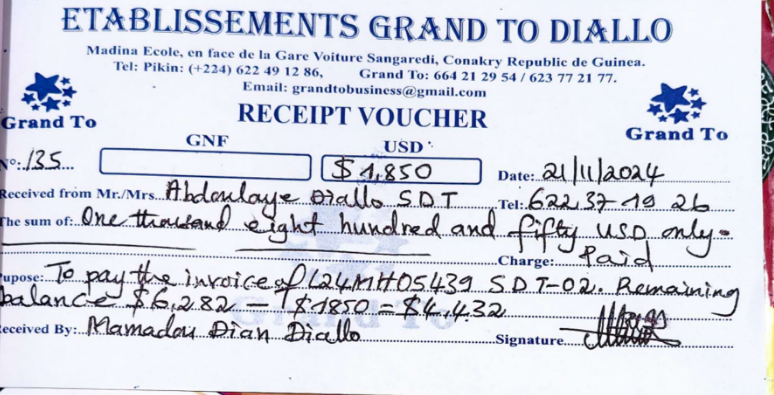 ETABLISSEMENTS GRAND TO DIALLO
Madina Ecole, en face de la Gare Voiture Sangaredi, Conakry Republic de Guinea.
Tel: Pikin: (+224) 622 49 12 86, Grand To: 664 21 29 54 / 623 77 21 77.
Email: grandtobusiness@gmail.com
Grand To
RECEIPT VOUCHER
Grand To
GNF USD
Nº: 135 $ 1,850 Date: 21/11/2024
Received from Mr./Mrs. Abdoulaye Diallo SDT Tel: 622 37 19 26
The sum of: One thousand eight hundred and fifty USD only.
Charge: Paid
upose: To pay the invoice of L24MH05439 SDT-02. Remaining
balance $6,282 - $1850 = $4,432
Received By: Mamadou Dian Diallo Signature